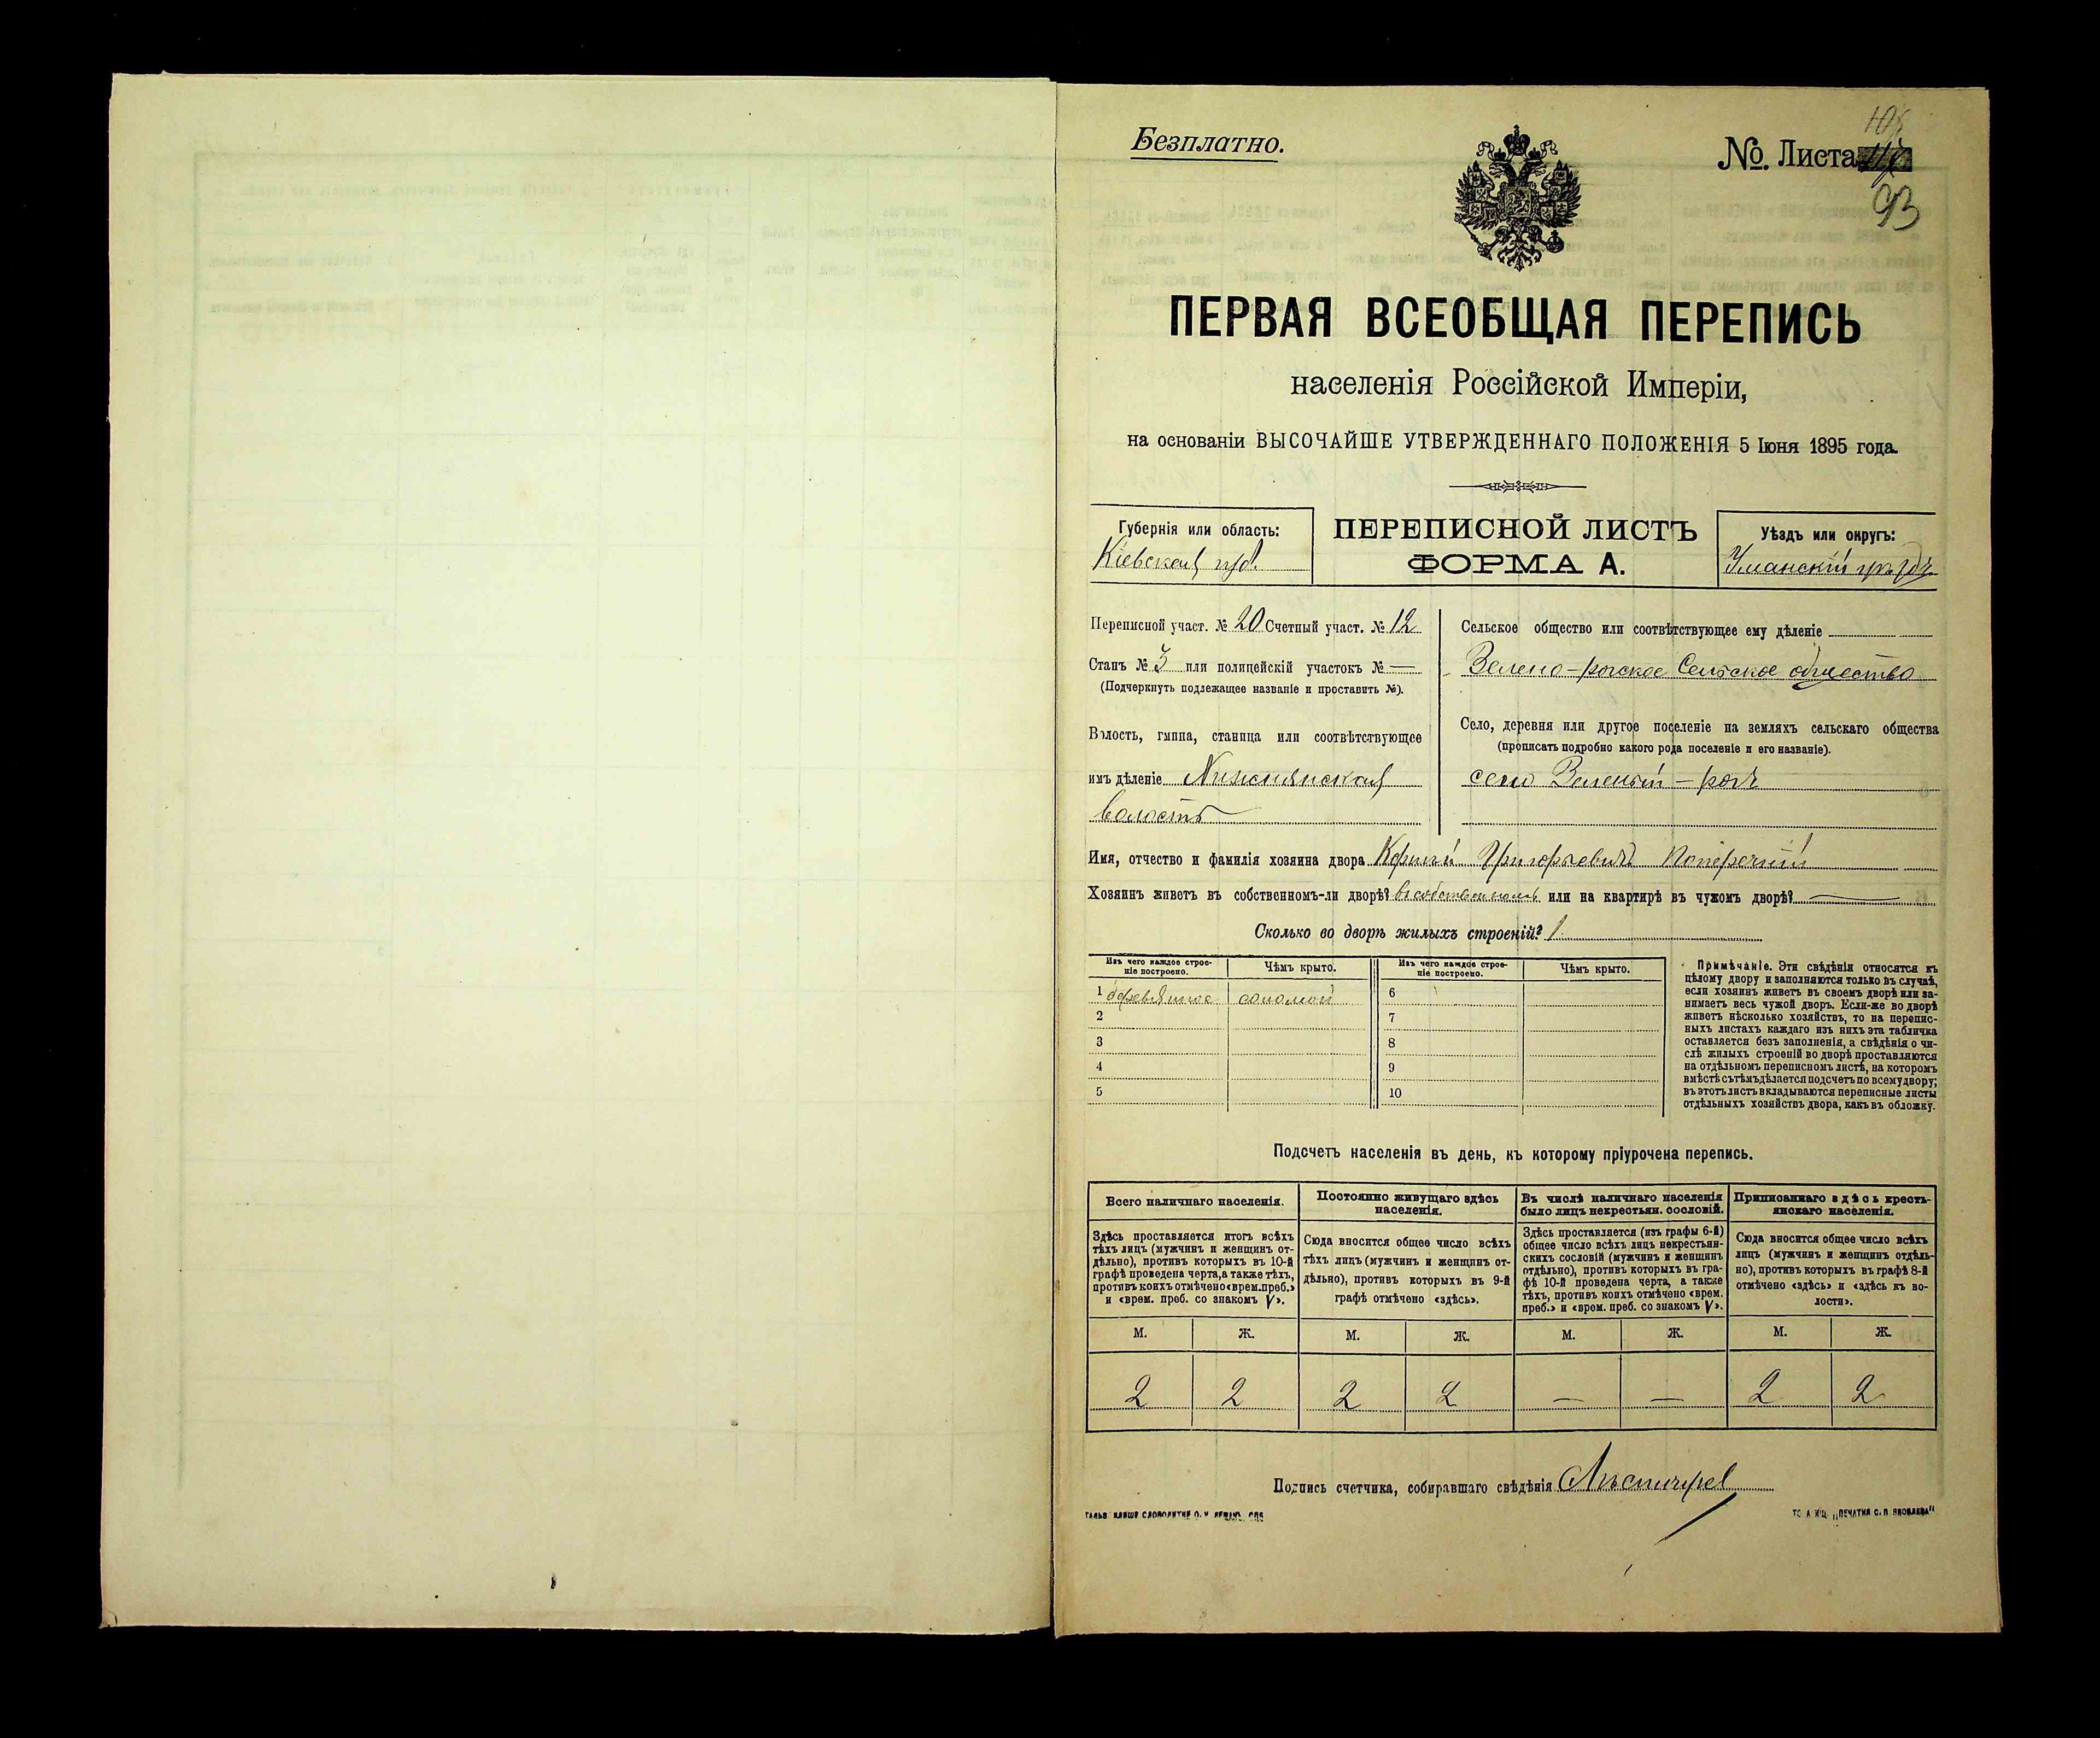 Безплатно.
№ Листа
93
ПЕРВАЯ ВСЕОБЩАЯ ПЕРЕПИСЬ
населенія Россійской Имперіи,
на основаніи ВЫСОЧАЙШЕ УТВЕРЖДЕННАГО ПОЛОЖЕНІЯ 5 Іюня 1895 года.
Губернія или область:
Кіевская губ.
ПЕРЕПИСНОЙ ЛИСТЪ
ФОРМА А.
Уѣздъ или округъ:
Уманскій уѣздъ
Переписной участ. № 20 Счетный участ. № 12
Станъ № 3 или полицейскій участокъ № —
(Подчеркнуть подлежащее названіе и проставить №).
Волость, гмина, станица или соотвѣтствующее
имъ дѣленіе
волость
Сельское общество или соотвѣтствующее ему дѣленіе
Зелено-рогское Сельское общество
Село, деревня или другое поселеніе на земляхъ сельскаго общества
(прописать подробно какого рода поселеніе и его названіе).
село Зеленый-рогъ
Имя, отчество и фамилія хозяина двора Корній Григорьевичъ Поперечній
Хозяинъ живетъ въ собственномъ-ли дворѣ? въ собственномъ или на квартирѣ въ чужомъ дворѣ? —
Сколько во дворѣ жилыхъ строеній? 1
Изъ чего каждое строе-
ніе построено.
Чѣмъ крыто.
Изъ чего каждое строе-
ніе построено.
Чѣмъ крыто.
1 деревянное соломой 6
2 7
3 8
4 9
5 10
Примѣчаніе. Эти свѣдѣнія относятся къ
цѣлому двору и заполняются только въ случаѣ,
если хозяинъ живетъ въ своемъ дворѣ или за-
нимаетъ весь чужой дворъ. Если-же во дворѣ
живетъ нѣсколько хозяйствъ, то на перепис-
ныхъ листахъ каждаго изъ нихъ эта табличка
оставляется безъ заполненія, а свѣдѣнія о чи-
слѣ жилыхъ строеній во дворѣ проставляются
на отдѣльномъ переписномъ листѣ, на которомъ
вмѣстѣ съ тѣмъ дѣлается подсчетъ по всему двору;
въ этотъ листъ вкладываются переписные листы
отдѣльныхъ хозяйствъ двора, какъ въ обложку.
Подсчетъ населенія въ день, къ которому пріурочена перепись.
Всего наличнаго населенія.
Здѣсь проставляется итогъ всѣхъ
тѣхъ лицъ (мужчинъ и женщинъ от-
дѣльно), противъ которыхъ въ 10-й
графѣ проведена черта, а также тѣхъ,
противъ коихъ отмѣчено «врем. преб.»
и «врем. преб. со знакомъ V».
Постоянно живущаго здѣсь
населенія.
Сюда вносится общее число всѣхъ
тѣхъ лицъ (мужчинъ и женщинъ от-
дѣльно), противъ которыхъ въ 9-й
графѣ отмѣчено «здѣсь».
Въ числѣ наличнаго населенія
было лицъ некрестьян. сословій.
Здѣсь проставляется (изъ графы 6-й)
общее число всѣхъ лицъ некрестьян-
скихъ сословій (мужчинъ и женщинъ
отдѣльно), противъ которыхъ въ гра-
фѣ 10-й проведена черта, а также
тѣхъ, противъ коихъ отмѣчено «врем.
преб.» и «врем. преб. со знакомъ V».
Приписаннаго здѣсь кресть-
янскаго населенія.
Сюда вносится общее число всѣхъ
лицъ (мужчинъ и женщинъ отдѣль-
но), противъ которыхъ въ графѣ 8-й
отмѣчено «здѣсь» и «здѣсь къ во-
лости».
М. Ж. М. Ж. М. Ж. М. Ж.
2 2 2 2 — — 2 2
Подпись счетчика, собиравшаго свѣдѣнія